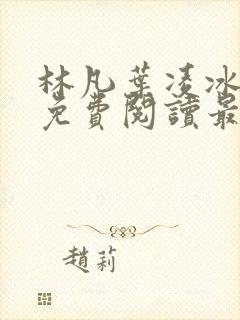 林凡葉凌冰
免費閱讀最
趙莉